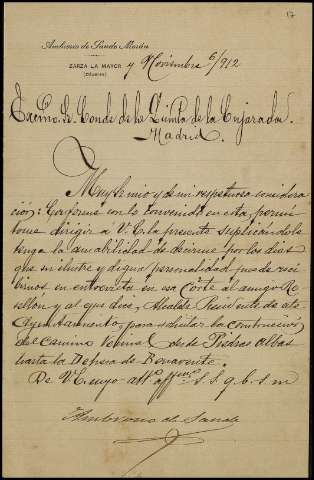 17
Ambrosio de Sande Morán
ZARZA LA MAYOR y Noviembre 6/912
(CÁCERES)
Excmo. Sr. Conde de la Quinta de la Enjarada.
Madrid.
Muy Sr mio y de mi respetuosa considera
ción: Conforme con lo convenido en esta, permi
tome dirigir a V. E. la presente suplicandole
tenga la amabilidad de decirme por los dias
que su ilustre y digna personalidad puede reci
birnos en entrevista en esa Corte al amigo Ro
sellón y al que dice, Alcalde Presidente de este
Ayuntamiento, para solicitar la construccion
del camino vecinal desde Piedras albas
hasta la Dehesa de Benavente.
De V. E. suyo attº affmo S. S. q. b. s. m
Ambrosio de Sande